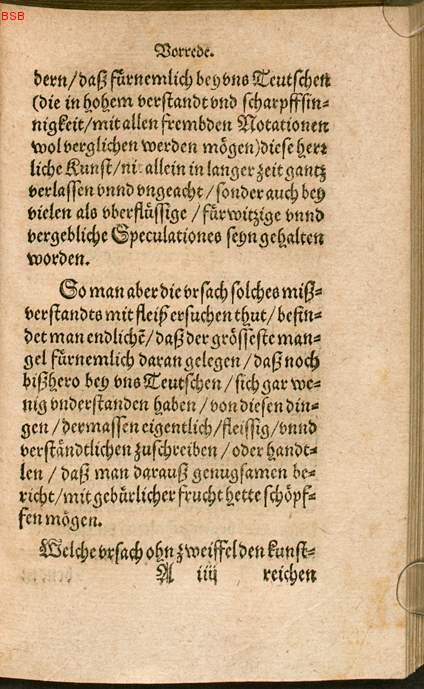 BSB
Vorrede.
dern/daß fürnemlich bey vns Teutschen
(die in hohem verstandt vnd scharpffsin-
nigkeit/mit allen frembden Notationen
wol verglichen werden mögen)diese herr
liche Kunst/ni allein in langer zeit gantz
verlassen vnnd vngeacht/sonder auch bey
vielen als vberflüssige/fürwitzige vnnd
vergebliche Speculationes seyn gehalten
worden.
So man aber die vrsach solches miß-
verstandts mit fleiß ersuchen thut/befin-
det man endlichẽ/daß der grösseste man-
gel fürnemlich daran gelegen/daß noch
bißhero bey vns Teutschen/sich gar we-
nig vnderstanden haben/von diesen din-
gen/dermassen eigentlich/fleissig/vnnd
verständtlichen zuschreiben/oder handt-
len/daß man darauß genugsamen be-
richt/mit gebürlicher frucht hette schöpf-
fen mögen.
Welche vrsach ohn zweiffel den kunst-
A iiij reichen